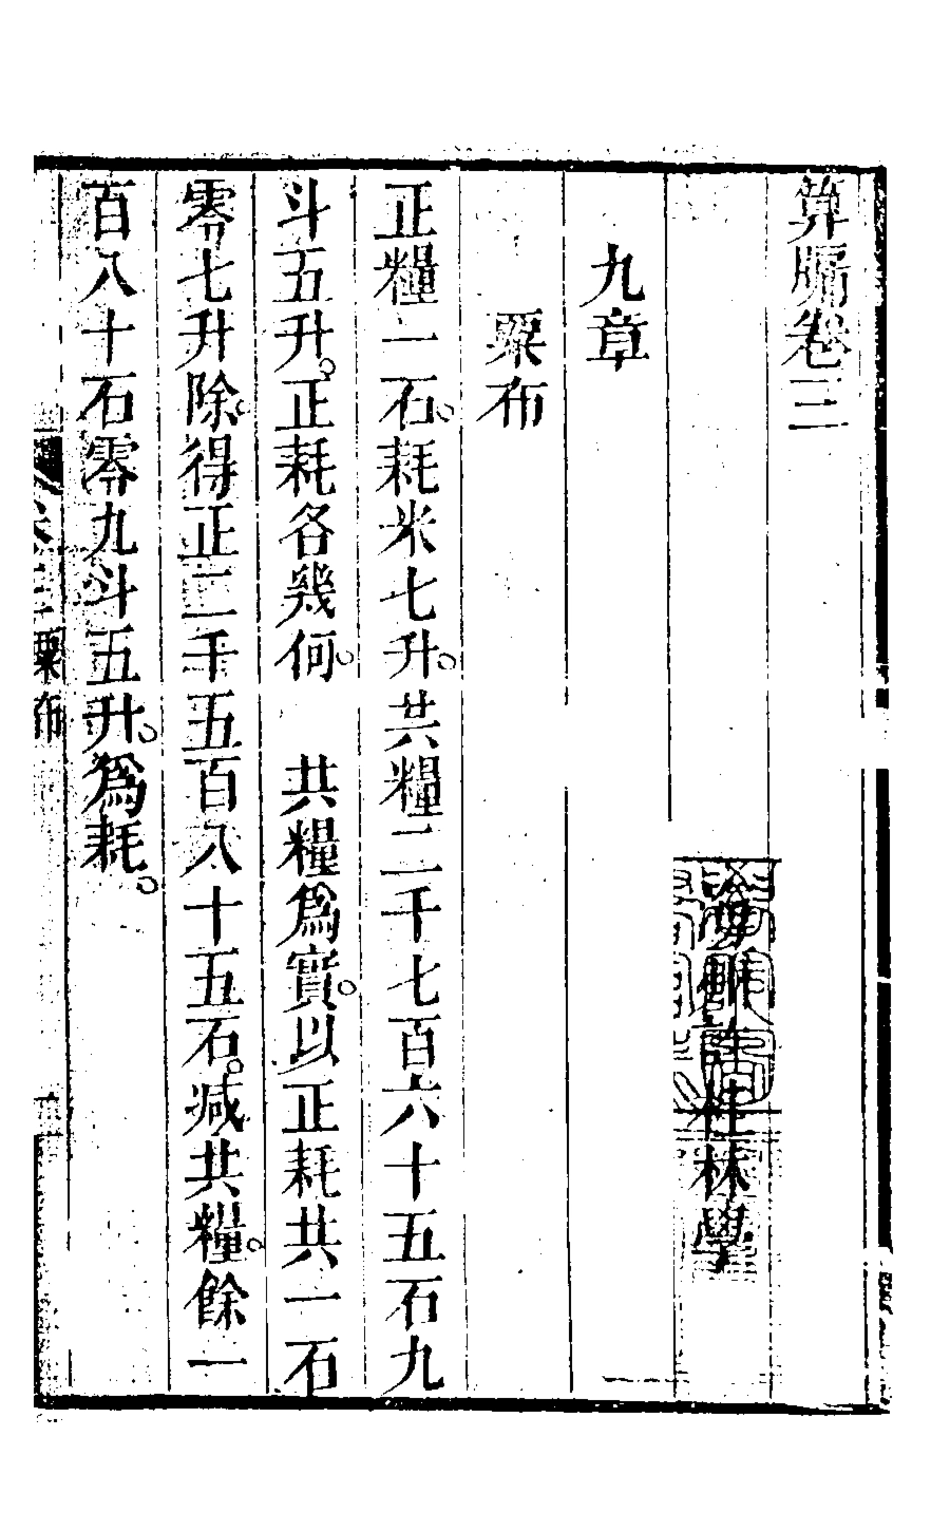 算牖卷三
海州許桂林學
九章
粟布
正糧一石。耗米七升。共糧二千七百六十五石九
斗五升。正耗各幾何。　共糧爲實。以正耗共一石
零七升除。得正二千五百八十五石。減共糧。餘一
百八十石零九斗五升。爲耗。
卷三粟布